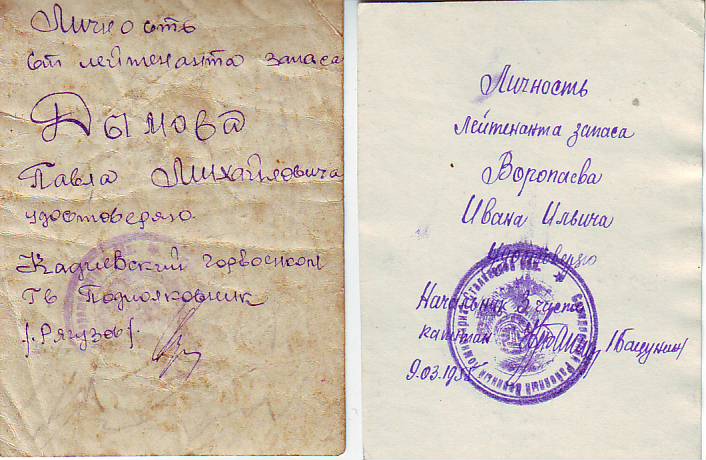 Личность
ст лейтенанта запаса
Дымова
Павла Михайловича
удостоверяю.
Кадиевский горвоенком
Гв Подполковник
/.Рягузов/.
Личность
лейтенанта запаса
Воропаева
Ивана Ильича
удостоверяю
Начальник 3 части
капитан
9.03.195
Районный Военный Комиссариат